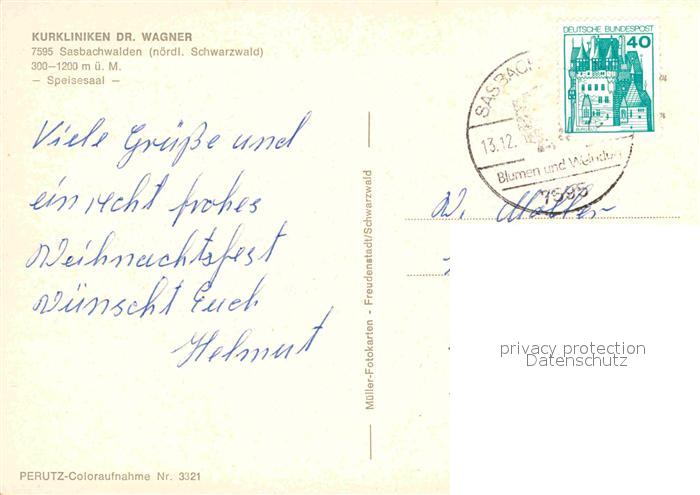 KURKLINIKEN DR. WAGNER
7595 Sasbachwalden (nördl. Schwarzwald)
300—1200 m ü. M.
— Speisesaal —
Viele Grüße und
ein recht frohes
Weihnachtsfest
wünscht Euch
Helmut
Müller-Fotokarten - Freudenstadt/Schwarzwald
PERUTZ-Coloraufnahme Nr. 3321
DEUTSCHE BUNDESPOST
40
SASBACH
13.12.
Blumen und Weindorf
7595
W. Müller
privacy protection
Datenschutz